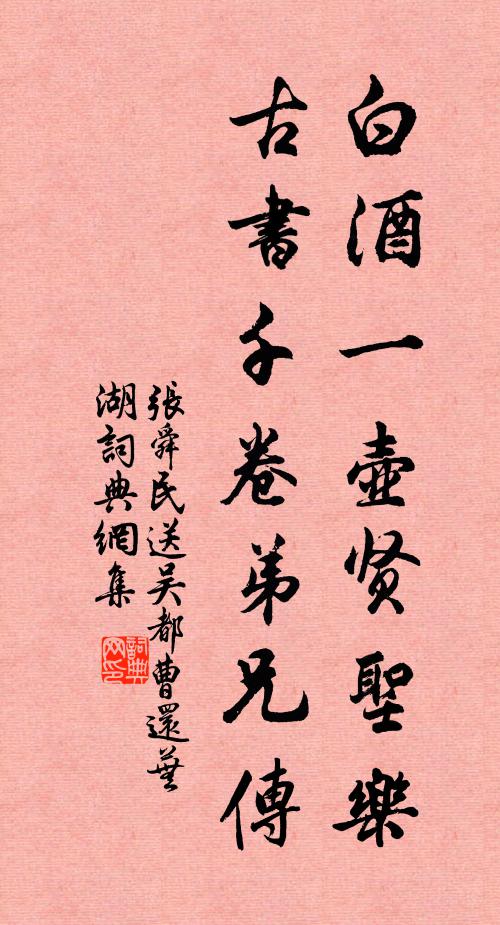 白酒一壺贤聖樂
古書千卷弟兄傳
張舜民送吴都曹還蕪
湖詞典網集
詞典网印